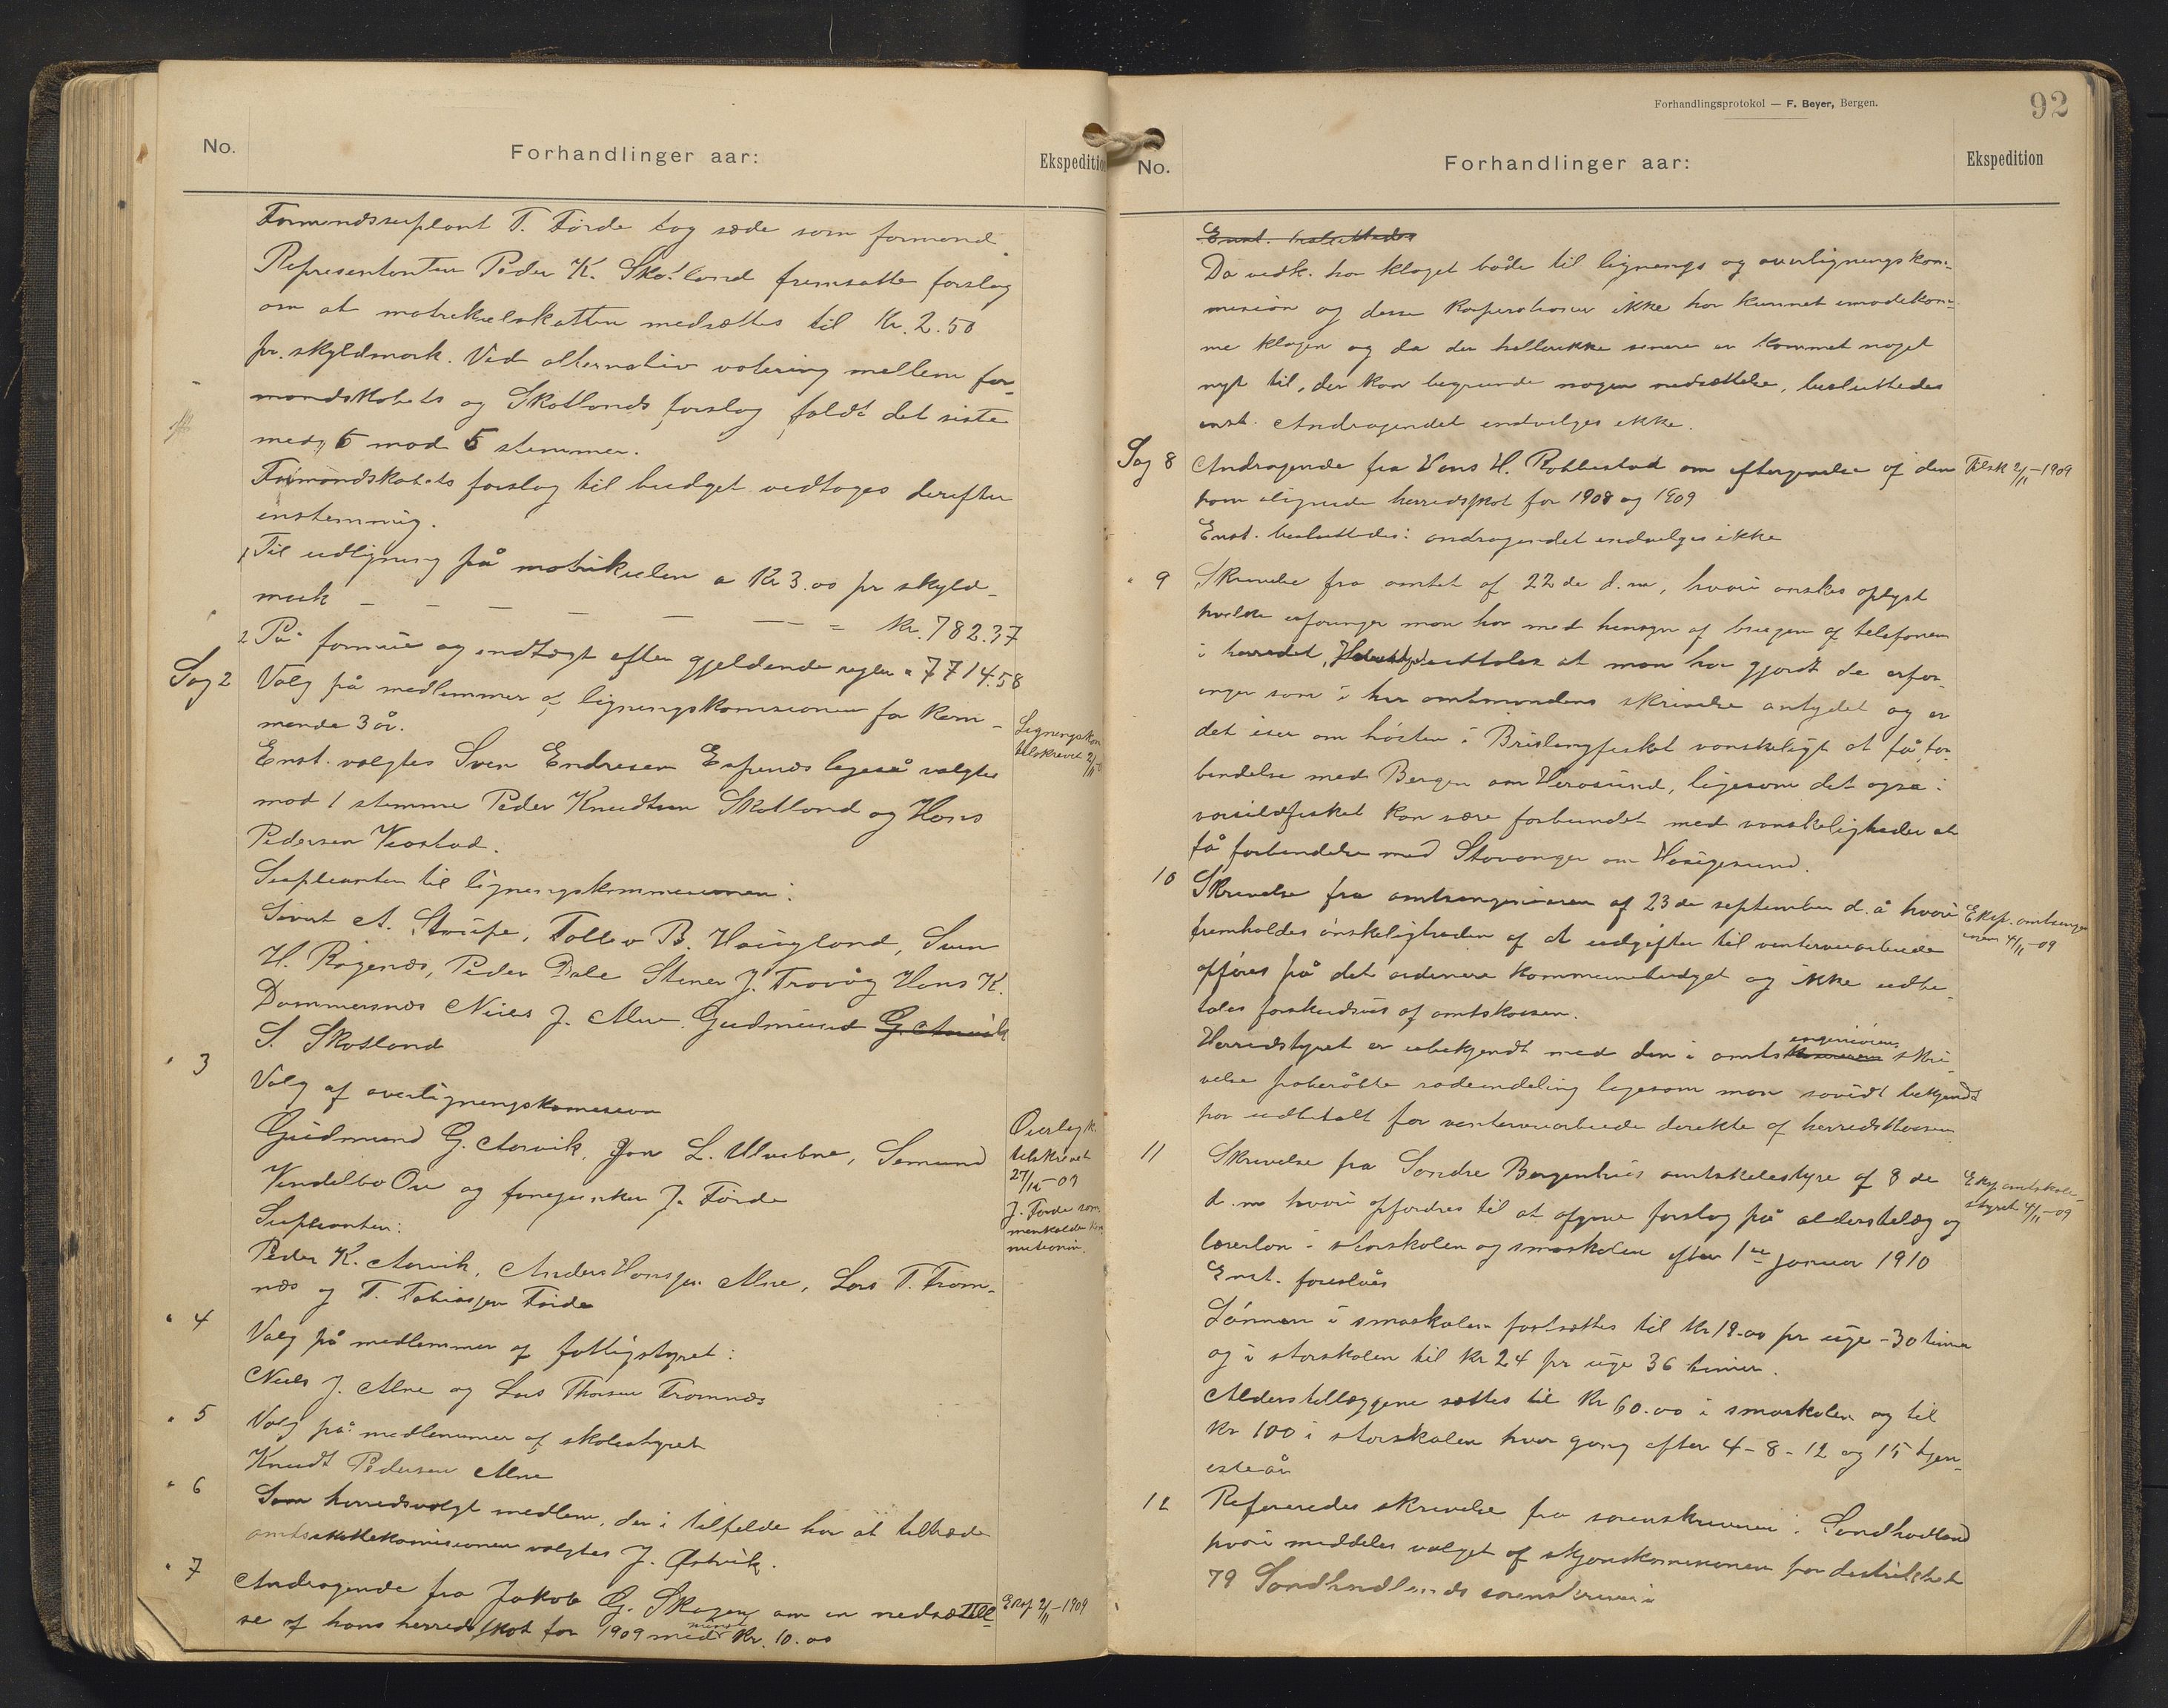 No.
Forhandlinger aar:
Ekspedition
Formandssuplant T. Førde tog sæde som formand.
Representanten Peder K. Skotland fremsatte forslag
om at matrikulskatten nedsættes til Kr. 2.50
pr. skyldmark. Ved alternativ votering mellem for-
mandskabets og Skotlands forslag faldt det siste
med 6 mod 5 stemmer.
Formandskabets forslag til budget vedtoges derefter
enstemmig.
1 Til udligning på matrikulen a Kr 3.00 pr skyld-
mark – – – – – – – = kr. 782.37
2 På formue og indtægt efter gjeldende regler " 7714.58
Sag 2 Valg på medlemmer af ligningskomisionen for kom-
mende 3 år.
Enst. valgtes Sven Endresen Espenes ligeså valgtes
mod 1 stemme Peder Knudtsen Skotland og Hans
Pedersen Vestad.
Ligningskom
tilskrevet 2/11
Suplianter til ligningskommisionen:
Sivert A. Stupe, Tollev B. Haugland, Sven
H. Røgenes, Peder Dale Stener J. Trovåg Hans K.
Dommersnes Niels J. Alne. Gudmund G. Aarvik
S. Skotland
" 3
Valg af overligningskomision
Gudmund G. Aarvik, Jon L. Ulvebne, Semund
Vendelbo Øie og fanejunker J. Førde
Overlig k.
tilskrevet
27/10-09
J. Førde som
Suplianter:
Peder K. Aarvik, Anders Hansen Alne, Lars T. Trom-
nes og T. Tobiassen Førde
" 4
Valg på medlemmer af fattigstyret:
Niels J. Alne og Lars Thorsen Tromnes
" 5
Valg på medlemmer af skolestyret
Knudt Pedersen Alne
" 6
Som herredsvalgt medlem, der i tilfelde har at tiltræde
amtsskattekomisionen valgtes J. Østvik.
" 7
Andragende fra Jakob G. Skogen om en nedsættel-
se af hans herredsskat for 1909 med mindst Kr. 10.00
Eksp 2/11-1909
Forhandlingsprotokol — F. Beyer, Bergen.
92
No.
Forhandlinger aar:
Ekspedition
Enst. besluttedes
Da vedk. har klaget både til lignings og overligningskom-
mision og desse korperationer ikke har kunnet imødekom-
me klagen og da der hellerikke senere er kommet noget
nyt til, der kan begrunde nogen nedsættelse, besluttedes
enst. Andragendet indvilges ikke.
Sag 8 Andragende fra Hans H. Robbestad om eftergivelse af den
ham ilignede herredsskat for 1908 og 1909
Tilsk 2/11-1909
Enst. besluttedes: andragendet indvilges ikke
" 9 Skrivelse fra amtet af 22de d.m, hvori ønskes oplyst
hvilke erfaringer man har med hensyn af brugen af telefonen
i herredet, udtales at man har gjordt de erfar-
inger som i hr amtmandens skrivelse antydet og er
det især om høsten i Brislingfisket vanskeligt at få for-
bindelse med Bergen om Herøsund, ligesom det også i
vårsildfisket kan være forbundet med vanskeligheder at
få forbindelse med Stavanger om Haugesund.
10 Skrivelse fra amtsingeniøren af 23de september d.å hvori
fremholdes ønskeligheden af at udgifter til vinterveiarbeide
opføres på det ordinære kommunebudget og ikke udbe-
tales forskudsvis af amtskassen.
Eksp. amtsinge
iøren 4/11-09
Herredstyret er ubekjendt med den i amtsingeniørens skri-
velse påberåbte rodeindeling ligesom man såvidt bekjendt
har udbetalt for vinterveiarbeide direkte af herredskassen
11 Skrivelse fra Søndre Bergenhus amtskolestyre af 8 de
d.m hvori opfordres til at afgive forslag på alderstillæg og
lærerløn i storskolen og småskolen efter 1ste januar 1910
Eksp amtskole-
styret 4/11-09
Enst. foreslåes
Lønnen i småskolen fastsættes til Kr 18.00 pr uge - 30 timer
og i storskolen til Kr 24 pr uge 36 timer.
Alderstillæggene sættes til Kr 60.00 i småskolen og til
Kr 100 i storskolen hver gang efter 4 - 8 - 12 og 15 tjen-
esteår
12 Refereredes skrivelse fra sorenskriveren i Søndhordland
hvori meddeles valget af skjønskomisionen for distriktet
79 Søndhordlands sorenskriveri